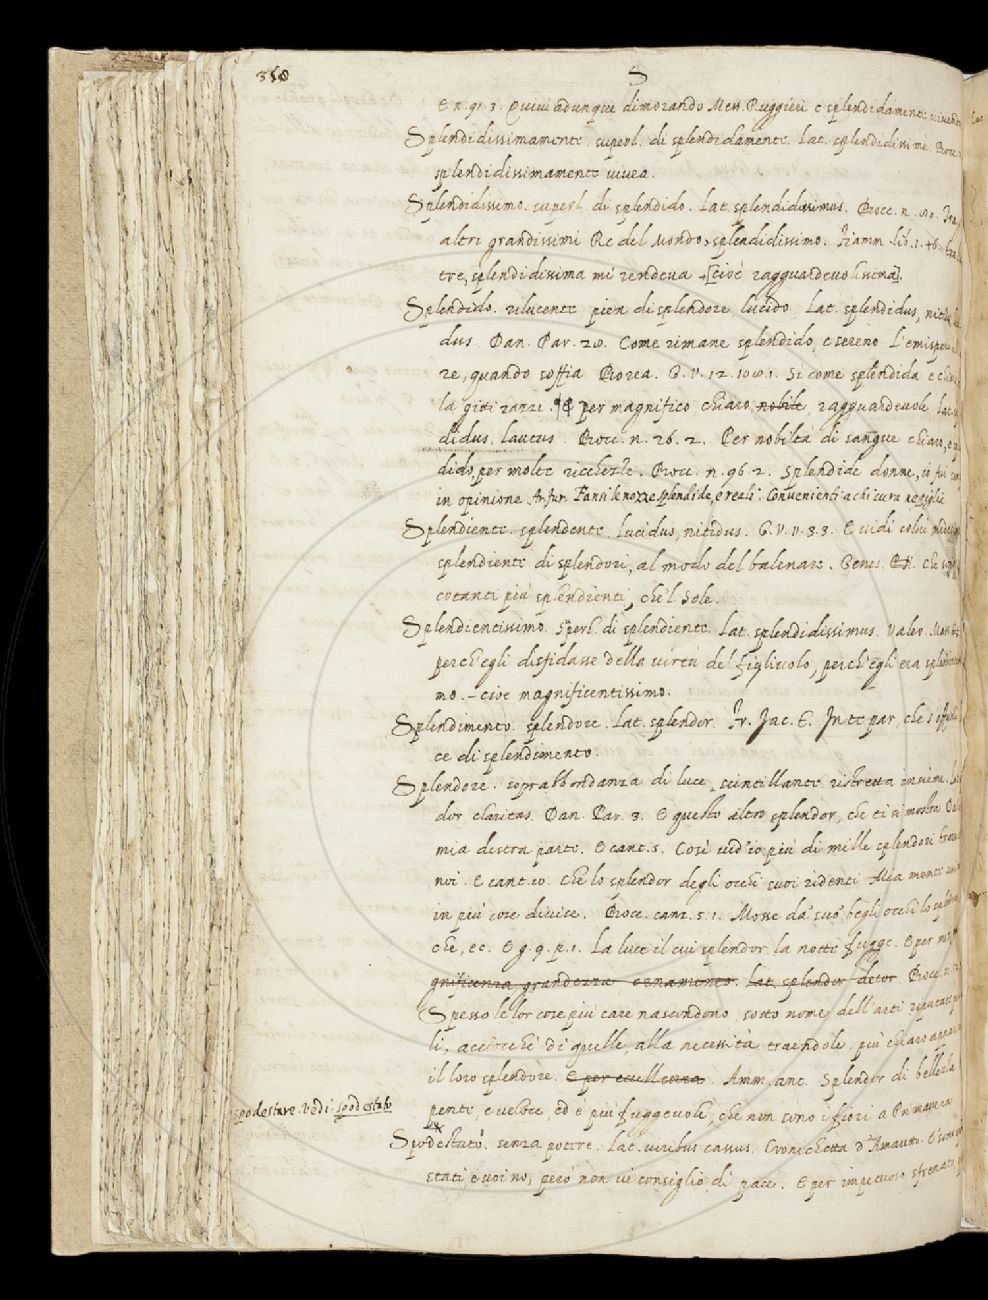 350
S
E n. 91. 3. Quivi adunque dimorando Mess. Ruggieri e splendidamente vivendo
Splendidissimamente. superl. di splendidamente. Lat. splendidissimè. Bocc.
splendidissimamente vivea.
Splendidissimo. superl. di splendido. Lat. splendidissimus. Bocc. n. 80.
altri grandissimi Re del Mondo, splendidissimo. Fiamm. lib. 1. 46.
tre, splendidissima mi rendeva [cioè ragguardevolissima].
Splendido. rilucente pien di splendore, lucido. Lat. splendidus,
dus. Dan. Par. 28. Come rimane splendido, e sereno L'emispe
re, quando soffia Borea. G. V. 12. 108. 1. Sì come splendida e
la gitti razzi. ¶ E per magnifico, chiaro, nobile, ragguardevole Lat.
didus, lautus. Bocc. n. 26. 2. Per nobiltà di sangue chiaro, e
dido, per molte ricchezze. Bocc. n. 96. 2. Splendide donne, io fui
in opinione. Ar. fur. Fansi le nozze splendide, e reali. Convenienti a chi cura ne piglia
Splendiente. splendente. Lucidus, nitidus. G. V. 11. 3. 3. E vidi colui
splendiente di splendori, al modo del balenare. Genes. Che
cotanti più splendienti, che'l Sole.
Splendientissimo. Sperl. di splendiente. Lat. splendidissimus. Valer. Mass.
perch'egli disfidasse della virtù del figliuolo, perch'egli era
mo. - cioe magnificentissimo.
Splendimento. splendore. Lat. splendor. Fr. Jac. T. Inte par, che
ce di splendimento.
Splendore. soprabbondanza di luce scintillante ristretta insieme.
dor, claritas. Dan. Par. 3. E questo altro splendor, che ti si mostra
mia destra parte. E cant. 5. Così vid'io più di mille splendori
noi. E cant. 10. Che lo splendor degli occhi suoi ridenti Mia mente
in più cose divise. Bocc. canz. 5. 1. Mosse da' suo' begli occhi lo
che, ec. E g. 9. p. 1. La luce il cui splendor la notte fugge. E per
gnificenza, grandezza, ornamento. Lat. splendor, decor. Bocc. n.
Spesso le lor cose più care nascondono sotto nome dell'arti riputate
li, acciocchè di quelle, alla necessità traendole, più chiaro
il loro splendore. E per eccellenza. Amm. ant. Splendor di bellezza
spodestare vedi spodestato
pente, e veloce, ed è più fuggevole, che non sono i fiori a Primavera
Spodestato. senza potere. Lat. viribus cassus. Cronichetta d'Amaretto.
stati, e voi no, però non vi consiglio di pace. E per impetuoso, sfrenato,